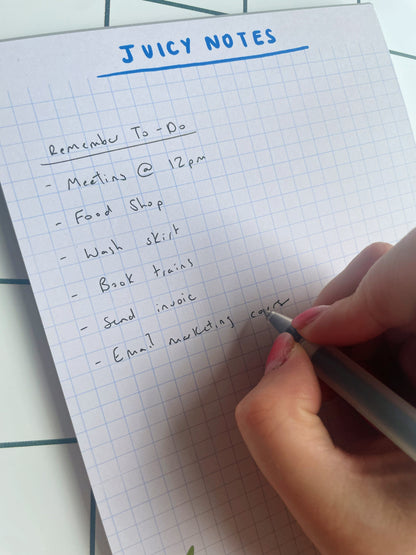 JUICY NOTES
Remember To-Do
- Meeting @ 12pm
- Food Shop
- Wash skirt
- Book trains
- Send invoic
- Email marketing